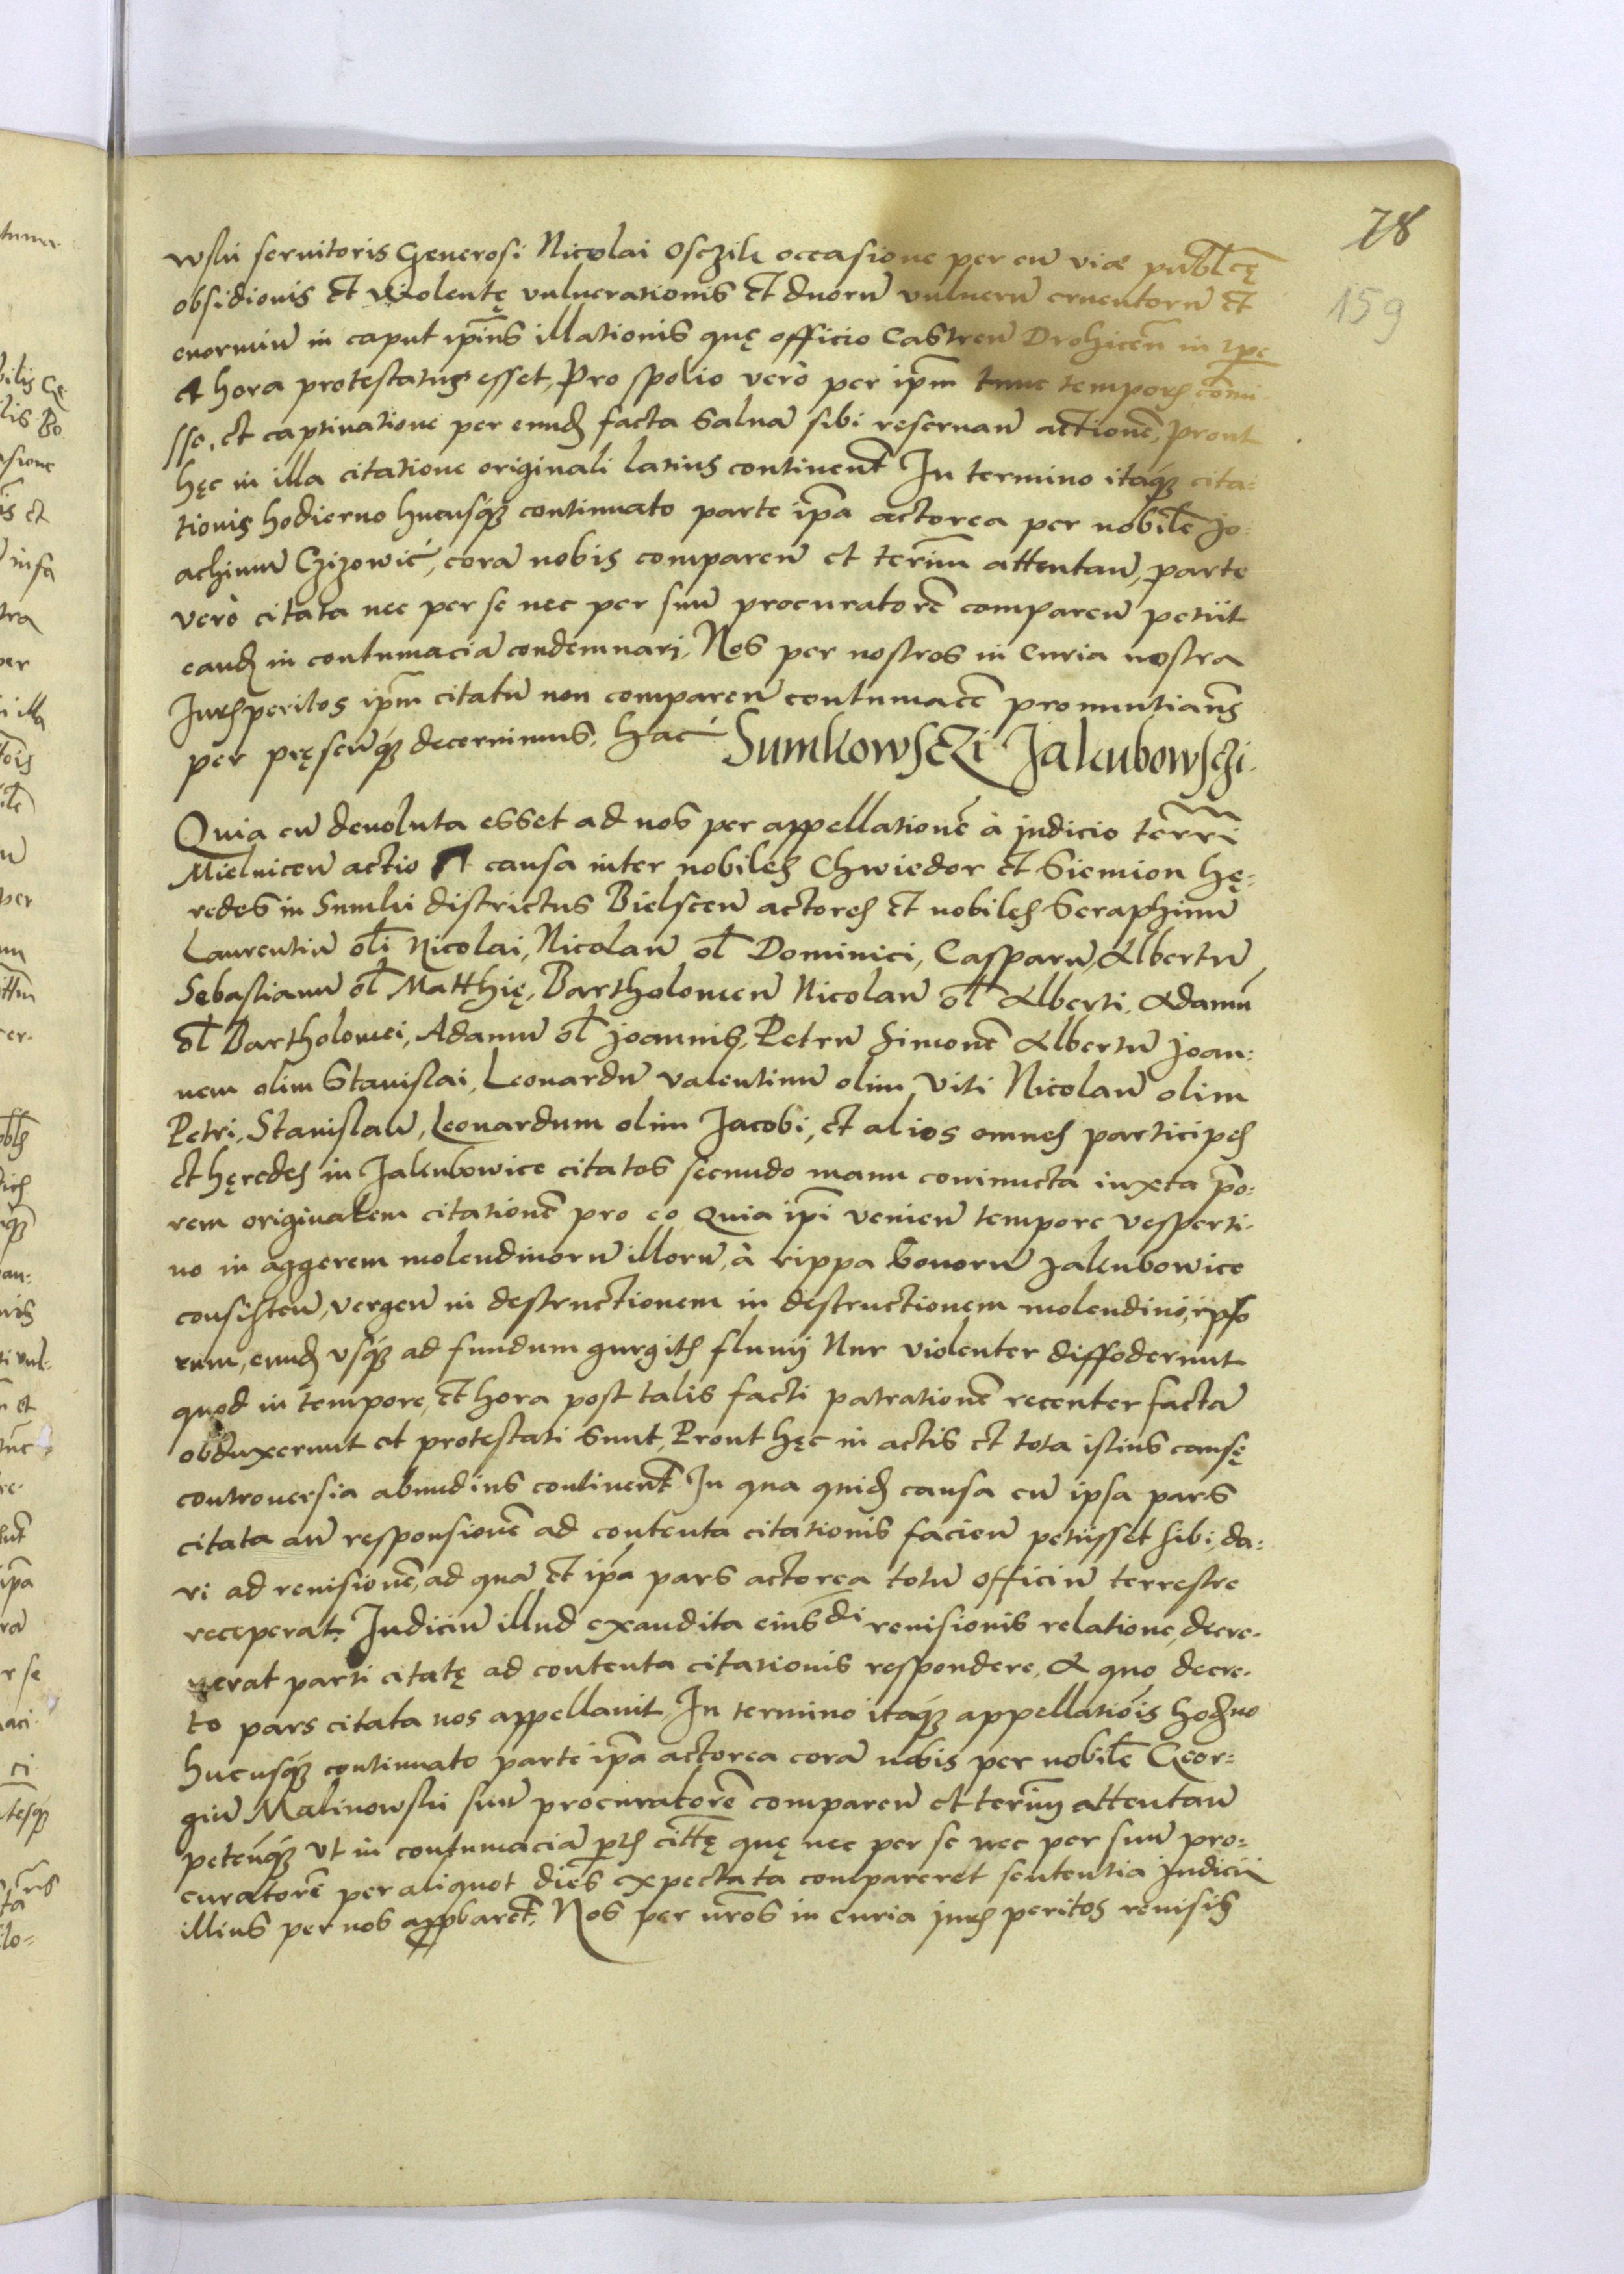 78
159
wski seruitoris Generosi Nicolai Osczik occasione per eū viæ publ̄cę
obsidionis et violentę vulnerationis et duorū vulnerū cruentorū et
enormiū in caput ip̄ius illationis quę officio Castren̄ Drohicen̄ in tp̄e
et hora protestatus esset, Pro spolio verò per ip̄m tunc temporis com̄i-
sso, et captiuatione per eund facta Saluā sibi reseruan̄ actionē, Prout
hęc in illa citatione originali latius continent̄ In termino itaq̄ cita:
tionis hodierno hucusq̄ continuato parte ip̄a actorea per nobilē Jo:
achimū Czizowić, corā nobis comparen̄ et terīm attentan̄, parte
verò citata nec per se nec per suū procuratorē comparen̄ petiit
eand in contumaciā condemnari, Nos per nostros in Curia nostra
Jurisperitos ip̄m citatū non comparen̄ contumacē pronuntians
per pręsenq̄ decernimus. hac̄ Sumkowsczi Jakubowsczi.
Quia cū deuoluta esset ad nos per appellationē à judicio terrī
Mielnicen̄ actio et causa inter nobiles Chwiedor et Siemion hę:
redes in Sumki districtus Bielscen̄ actores et nobiles Seraphinū
Laurentiū oli Nicolai, Nicolaū ol Dominici, Casparū, Albertū
Sebastianū ol Matthię, Bartholomeū Nicolaū ol Alberti, Adamū
ol Bartholomei, Adamū ol joannis, Petrū Simonē Albertū Joan:
nem olim Stanislai, Leonardū valentinū olim Viti Nicolaū olim
Petri, Stanislaū, Leonardum olim Jacobi, et alios omnes participes
et hęredes in Jakubowice citatos secundo manu coniuncta iuxta p̄o:
rem originalem citationē pro eo Quia ip̄i venien̄ tempore vesperti-
no in aggerem molendinorū illorū, à rippa bonorū Jakubowice
consisten̄, vergen̄ in destructionem in destructionem molendini, ipso
rum, eund vsq̄ ad fundum gurgitis fluuij Nur violenter diffoderunt
quod in tempore, et hora post talis facti patrationē recenter factā
obduxerunt et protestati sunt, Prout hęc in actis et tota istius causę
controuersia abundius continent̄ In qua quid causa cū ipsa pars
citata an̄ responsionē ad contenta citationis facien̄ petiisset sibi, da:
ri ad reuisionē, ad quā et ip̄a pars actorea totū officiū terrestre
receperat. Judiciū illud exaudita eius di reuisionis relatione, decre-
uerat parti citatę ad contenta citationis respondere, A quo decre-
to pars citata nos appellauit In termino itaq̄ appellatiōis hodno
hucusq̄ continuato parte ip̄a actorea corā nobis per nobilē Geor:
giū Malinowski suū procuratorē comparen̄ et terīm attentan̄
petenq̄ vt in contumaciā ptis cittę quę nec per se nec per suū pro:
curatorē per aliquot dies expectata compareret sententia Judicii
illius per nos appbaret̄, Nos per nr̄os in curia juris peritos reuisis